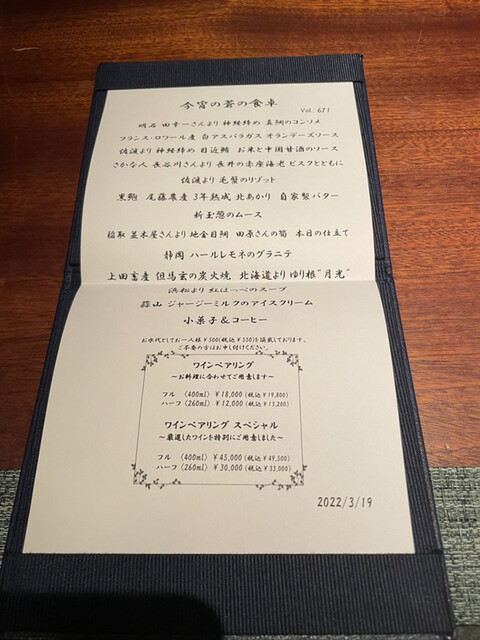 今宵の蒼の食卓
Vol. 671
明石 田幸一さんより 神経締め 真鯛のコンソメ
フランス・ロワール産 白アスパラガス オランデーズソース
佐渡より 神経締め 目近鮪 お米と中国甘酒のソース
さかな人 長谷川さんより 長井の赤座海老 ビスクとともに
佐渡より 毛蟹のリゾット
黒鮑 尾藤農産 3年熟成 北あかり 自家製バター
新玉葱のムース
稲取 並木屋さんより 地金目鯛 田原さんの筍 本日の仕立て
静岡 ハールレモネのグラニテ
上田畜産 但馬玄の炭火焼 北海道よりゆり根"月光"
浜松より 紅ほっぺのスープ
蒜山 ジャージーミルクのアイスクリーム
小菓子&コーヒー
お水代としてお一人様¥500(税込¥550)を頂戴しております。
ご不要の方はお申し付けください。
ワインペアリング
～お料理に合わせてご用意します～
フル (400ml) ¥18,000 (税込¥19,800)
ハーフ (260ml) ¥12,000 (税込¥13,200)
ワインペアリング スペシャル
～厳選したワインを特別にご用意しました～
フル (400ml) ¥45,000 (税込¥49,500)
ハーフ (260ml) ¥30,000 (税込¥33,000)
2022/3/19